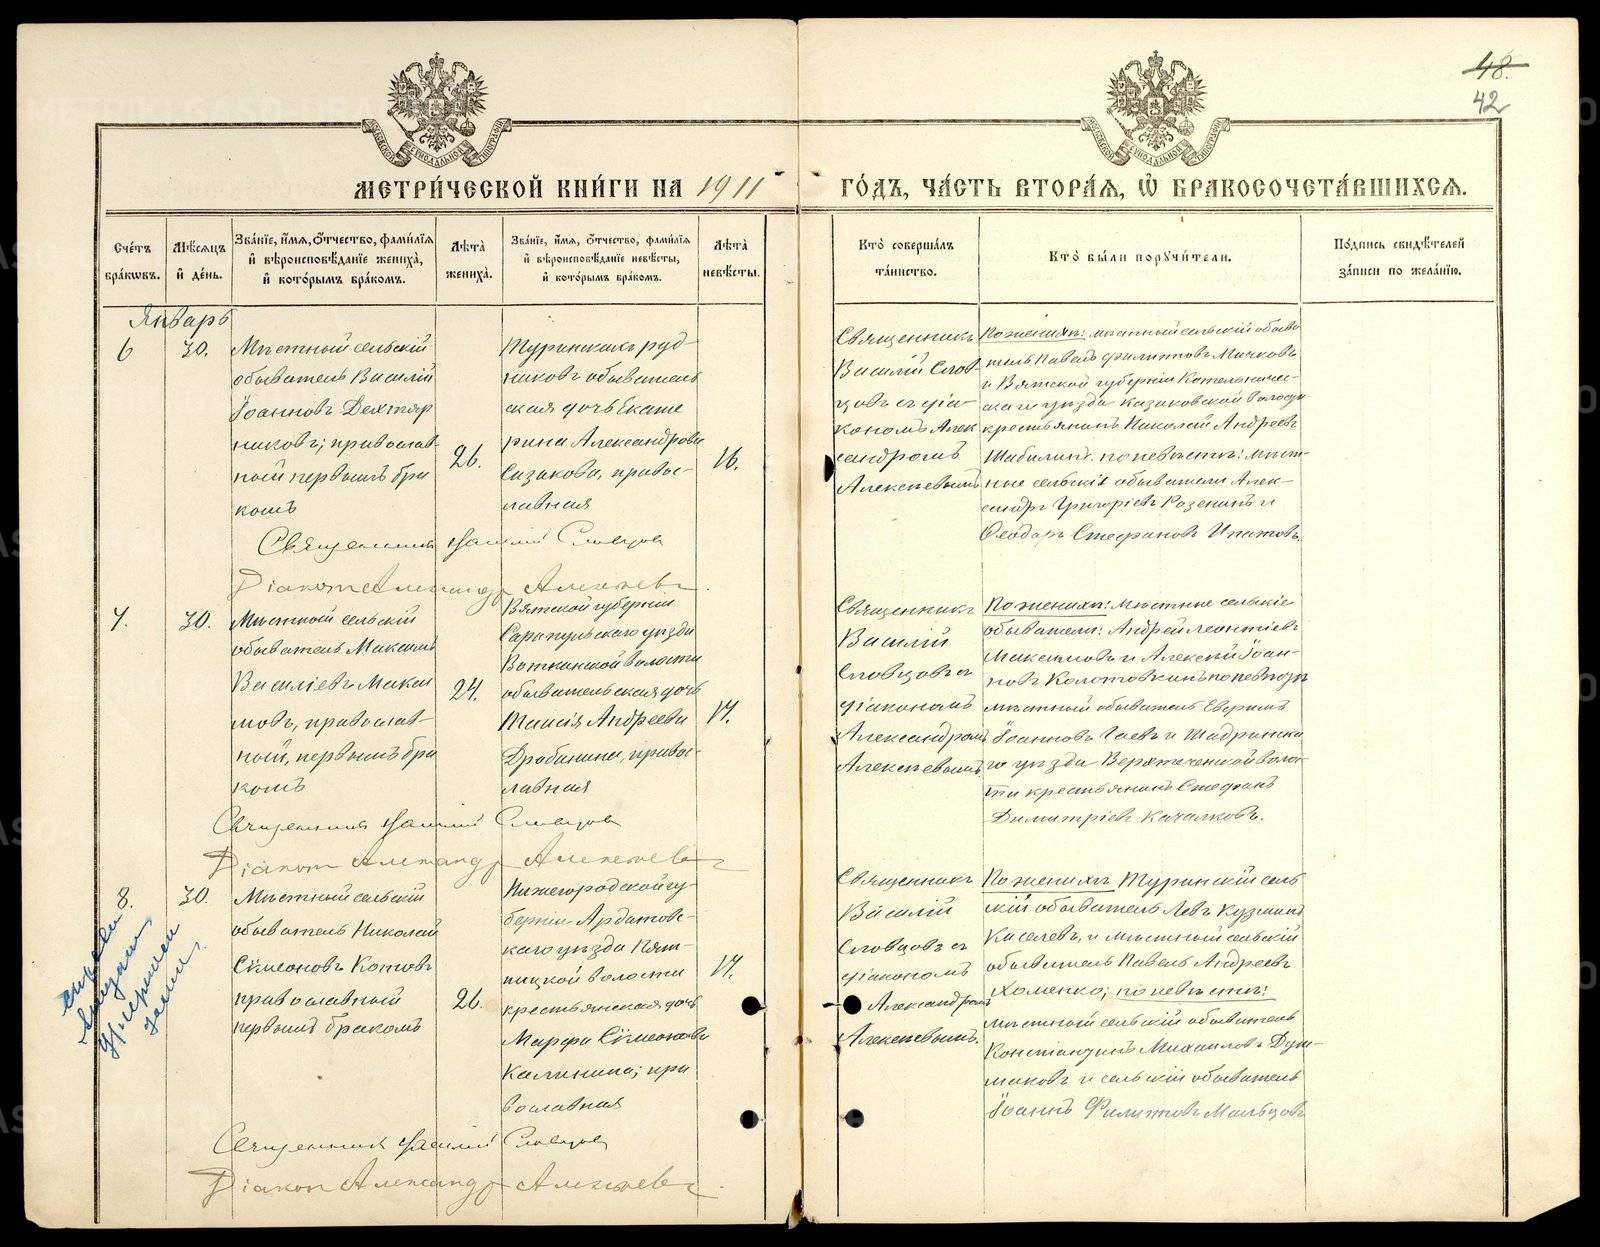 48.
42
МЕТРИ́ЧЕСКОЙ КНИ́ГИ НА 1911
ГО́ДЪ, ЧА́СТЬ ВТОРА́Ѧ, Ѽ БРАКОСОЧЕТА́ВШИХСѦ.
Сче́тъ
бра́кѡвъ.
Мѣ́сяцъ
и҆ де́нь.
Зва́нїе, и҆́мѧ, ѻ҆́тчество, фами́лїѧ
и҆ вѣроисповѣ́данїе жениха̀,
и҆ кото́рымъ бра́комъ.
Лѣ́та̀
жениха̀.
Зва́нїе, и҆́мѧ, ѻ҆́тчество, фами́лїѧ
и҆ вѣроисповѣ́данїе невѣ́сты,
и҆ кото́рымъ бра́комъ.
Лѣ́та̀
невѣ́сты.
Кто̀ соверша́лъ
та́инство.
Кто̀ бы́ли поручи́тели.
По́дпись свидѣ́телей
за́писи по жела́нїю.
Январь
6
30.
Мѣстный сельскій
обыватель Василій
Іоанновъ Дехтяр
никовъ; православ-
ный первымъ бра
комъ
26.
Туринскихъ руд-
никовъ обыватель
ская дочь Екате
рина Александрова
Сизикова, правос-
лавная
16.
Священникъ
Василій Слов-
цовъ съ діа-
кономъ Алек
сандромъ
Алексѣевымъ
По женихѣ: мѣстный сельскій обыва
тель Павелъ Филипповъ Мичковъ
и Вятской губерніи Котельничес-
каго уѣзда Казаковской волости
крестьянинъ Николай Андреевъ
Шабалинъ. по невѣстѣ: мѣст-
ные сельскіе обыватели Алек-
сандръ Григоріевъ Розенинъ и
Ѳеодоръ Стефановъ Ипатовъ.
Священникъ Василій Словцовъ
Діаконъ Александръ Алексѣевъ.
7.
30.
Мѣстный сельскій
обыватель Максимъ
Василіевъ Макси
мовъ, православ-
ный, первымъ бра
комъ
24.
Вятской губерніи
Сарапульскаго уѣзда
Воткинской волости
обывательская дочь
Таисія Андреева
Дробинина, правос-
лавная
17.
Священникъ
Василій
Словцовъ съ
діакономъ
Александромъ
Алексѣевымъ
По женихѣ: мѣстные сельскіе
обыватели: Андрей Леонтіевъ
Максимовъ и Алексѣй Іоан-
новъ Колотовкинъ по невѣстѣ
мѣстный обыватель
Іоанновъ Гаевъ и Шадринска
го уѣзда Верхтеченской волос-
ти крестьянинъ Стефанъ
Димитріевъ Качалковъ.
Священникъ Василій Словцовъ
Діаконъ Александръ Алексѣевъ
8.
30.
Мѣстный сельскій
обыватель Николай
Сѵмеоновъ Котовъ
православный
первымъ бракомъ
26
Нижегородской гу-
берніи Ардатовс-
каго уѣзда Пят-
ницкой волости
крестьянская дочь
Марфа Сѵмеонова
Калинина; пра
вославная
17.
Священникъ
Василій
Словцовъ съ
діакономъ
Александромъ
Алексѣевымъ.
По женихѣ Туринскій сель
скій обыватель Левъ Кузминъ
Киселевъ, и мѣстный сельскій
обыватель Павелъ Андреевъ
Хоменко; по невѣстѣ:
мѣстный сельскій обыватель
Константинъ Михаиловъ Душ-
маковъ и сельскій обыватель
Іоаннъ Филипповъ Мальцовъ
Священникъ Василій Словцовъ
Діаконъ Александръ Алексѣевъ.